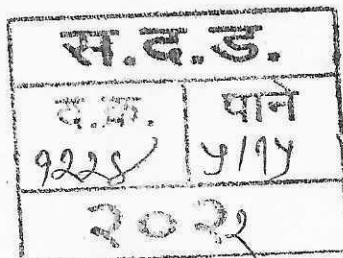 स.द.ड.
द.क्र. पाने
१२२४ ५/१५
२०२२